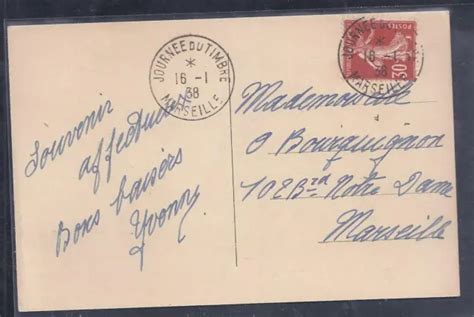 JOURNEE DU TIMBRE
*
16-1
38
MARSEILLE
POSTES
30
JOURNEE DU TIMBRE
*
16-1
38
MARSEILLE
Souvenir
affectueux
Bons baisers
Yvonne
Mademoiselle
O Bourguignon
102 Bd Notre Dame
Marseille